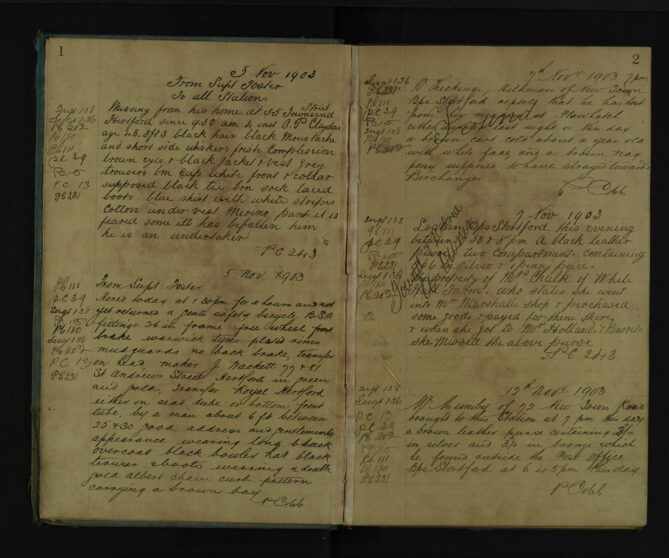 1
5 Nov 1903
From Supt Foster
To all Stations
Missing from his home at 35 Townsend Street
Hertford since 9.30 am 4 inst
age 40. 5ft 3 black hair black Moustache
and short side whiskers fresh Complexion
brown eyes & black jacket & vest grey
trousers bm cap white front & collar
supposed black tie bm sock laced
boots blue shirt with white stripes
Cotton under vest Merino pants it is
feared some ill has befallen him
he is an undertaker
PC 243
Sergt 128
Sergt 136
PC 202
PC 111
PC 39
PC 13
PC 231
5 Nov 1903
From Supt Foster
Hired today at 1.30 pm for 2 hours and not
yet returned a gents safety bicycle B.S.A
fittings 26 in frame free wheel front
brake warwick tyres plated rims
mudguards no back brake, transfer
on head maker J. Wackett 77 & 81
St Andrews Street Hertford in green
and gold, Transfer Royal Hertford
either on seat tube or bottom front
tube, by a man about 6 ft between
25 & 30 good address and gentlemanly
appearance wearing long black
overcoat black bowler hat black
trousers & boots wearing a double
gold albert chain curb pattern
carrying a brown bag
PC 66
PC 111
PC 39
PC 180
Sergt 136
PC 202
PC 13
PC 231
2
7th Novr 1903 9 pm
of New Town
Bps Stortford reports that he has lost
from
last night or this day
a brown colt about a year old
with white face and a brown nag
pony supposed to have strayed towards
Birchanger
PC 66
Sergt 136
PC 231
PC 111
PC 39
Sergt 128
7 Nov 1903
Lost in Bps Stortford this evening
between & 8 pm A black leather
purse two Compartment containing
silver &
the property of Mrs Chalk of White
who states she went
into Mr Marshalls shop & purchased
some goods & paid for them there
& when she got to Mr Holland &
she missed the above purse
PC 243
Sergt 128
PC 111
PC 39
PC 231
Sergt 136
PC 202
12th Novr 1903
Mr Mumby of 72 New Town Road
brought to this Station at 7 pm this day
a brown leather purse containing
in silver and in bronze which
he found outside the Post Office
Bps Stortford at 6.45 pm this day
PC 66
Sergt 128
Sergt 136
PC 13
PC 39
PC 202
PC 111
PC 180
PC 231